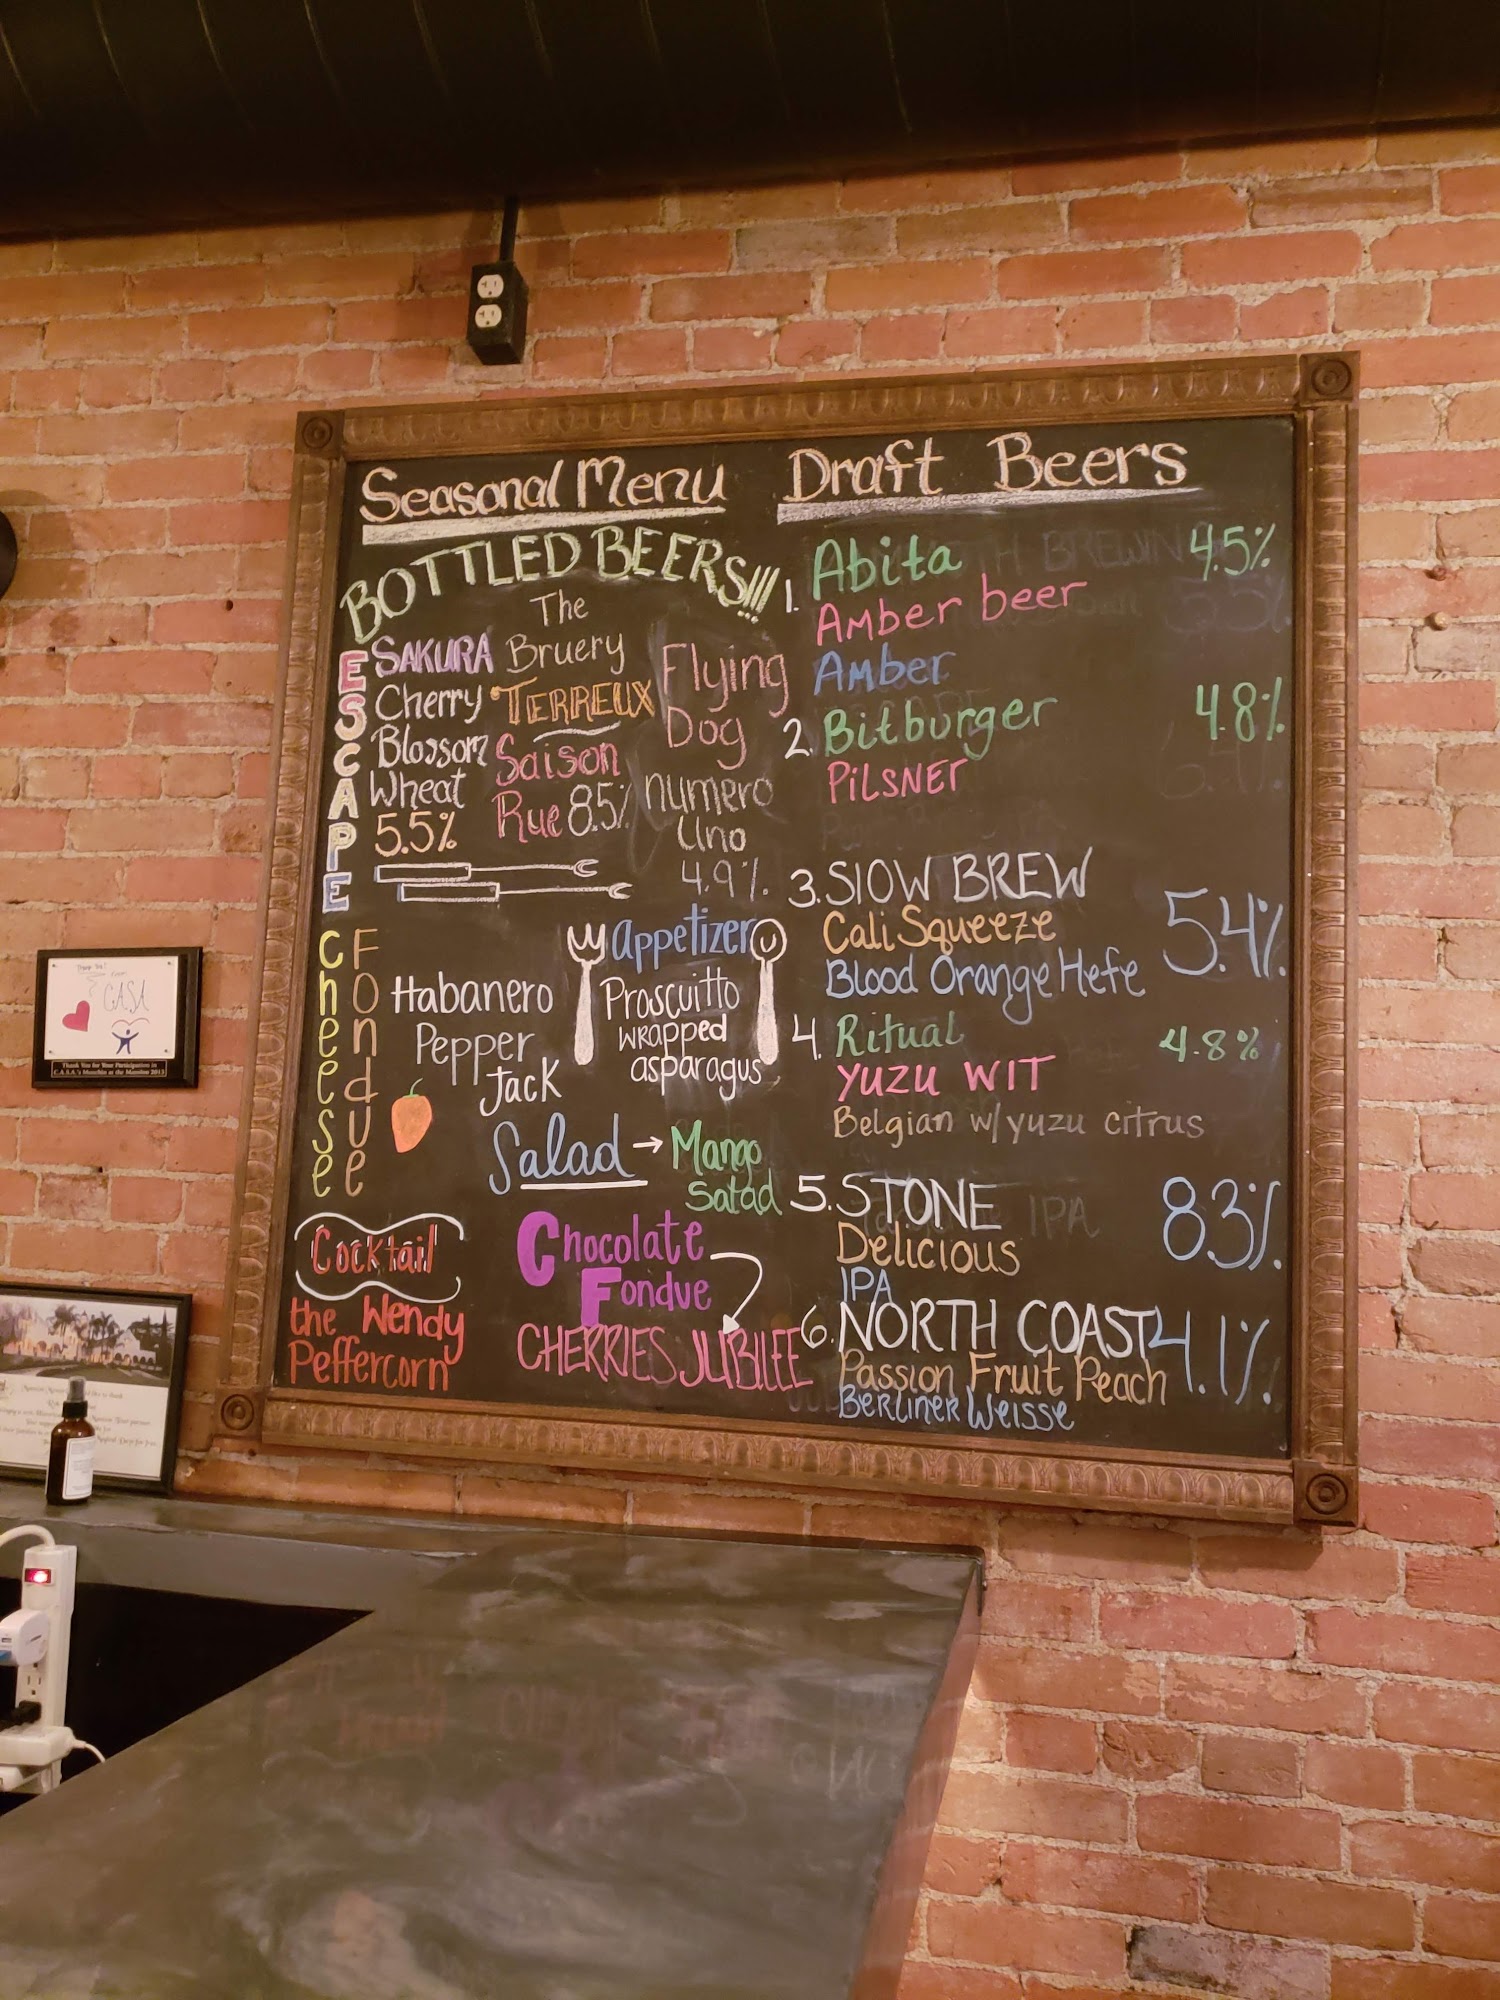 Seasonal Menu
BOTTLED BEERS!!!
ESCAPE
SAKURA
Cherry
Blossom
Wheat
5.5%
The
Bruery
TERREUX
Saison
Rue 8.5%
Flying
Dog
numero
Uno
4.9%
Cheese
Fondue
Habanero
Pepper
Jack
Appetizer
Proscuitto
wrapped
asparagus
Salad → Mango
Salad
Chocolate
Fondue
CHERRIES JUBILEE
Cocktail
the Wendy
Peffercorn
Draft Beers
1. Abita 4.5%
Amber beer
Amber
2. Bitburger 4.8%
PILSNER
3. SLOW BREW
Cali Squeeze 5.4%
Blood Orange Hefe
4. Ritual 4.8%
YUZU WIT
Belgian w/ yuzu citrus
5. STONE 8.3%
Delicious
IPA
6. NORTH COAST 4.1%
Passion Fruit Peach
Berliner Weisse
CASA
Thank You for Your Participation in
C.A.S.A.'s Munchin at the Mansion 2013